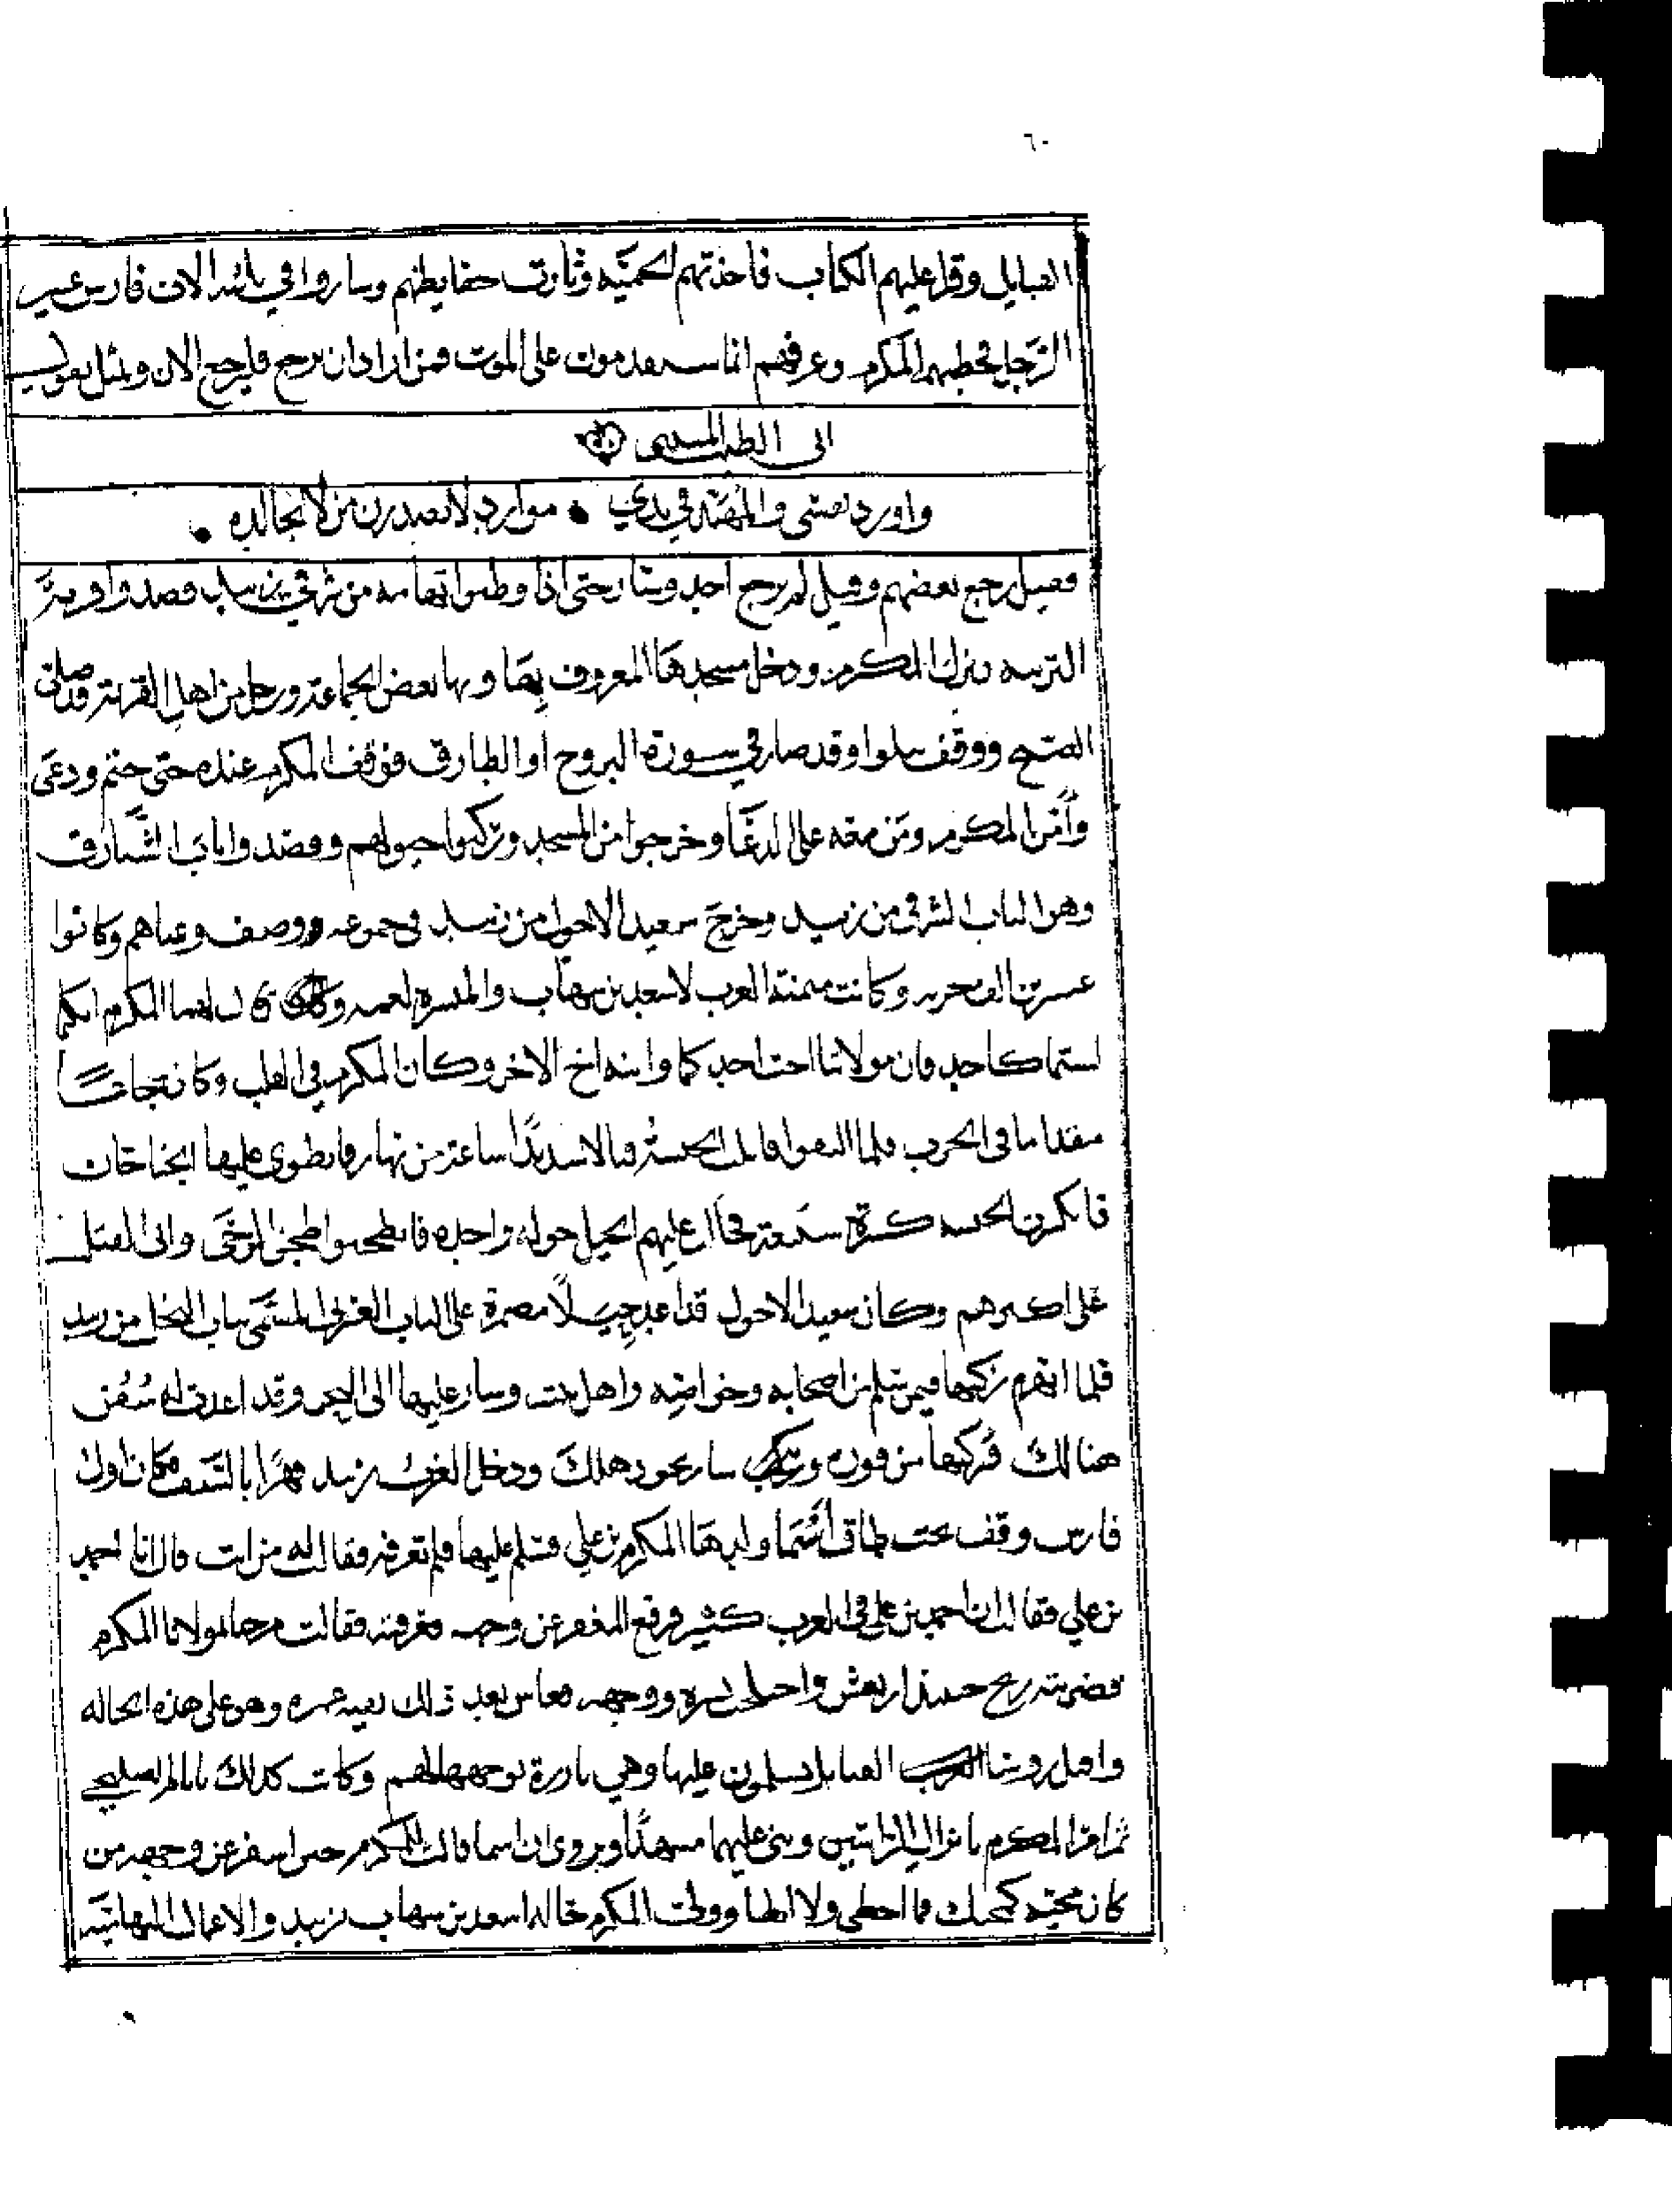 ٦٠
القبايل وقرا عليهم الكتاب فاخذتهم الحميّه وثارت حفايظهم وساروا في ثلثه الاف فارس غير
الرّجال فخطبهم المكرم وعرفهم انما يقدمون على الموت فمن اراد ان يرجع فليرجع الان وتمثل بقول
ابى الطيب المتنبى
واورد نفسى والمهنّد في يدي • موارد لا يصدرن من لا يجالده •
فقيل رجع بعضهم وقيل لم يرجع احد وسار حتى اذا وطوا تهامه من شرقي زبيد قصدوا قرية
التربيه فنزل المكرم ودخل مسجدها المعروف بها وبها بعض الجماعة ورجل من اهل القرية قد صلى
الصبح ووقف يتلوا وقد صار في سورة البروج او الطارق فوقف المكرم عنده حتى ختم ودعى
وأمّن المكرم ومن معه على الدعا وخرجوا من المسجد وركبوا خيولهم وقصدوا باب الشبارق
وهو الباب الشرقى من زبيد وخرج سعيد الاحول من زبيد في جموعه ووصف وعباهم وكانوا
عشرين الف حربه وكانت ميمنة العرب لاسعد بن شهاب والميسره لعمه وقال لهما المكرم انكما
لستما كاحد فان مولاتنا اخت احدكما وابنه اخ الاخر وكان المكرم في القلب وكان شجاعا
مقداما في الحرب فلما التقوا قاتلت الحبشه قتالا شديدًا ساعة من نهار فانطوى عليها الجناحان
فانكسرت الحبشه كسرة شنيعة فجال عليهم الخيل جوله واحده فانطحنوا طحن الرخى واتى القتل
على اكثرهم وكان سعيد الاحول قد اعد خيلاً مضمرة على الباب الغربى المسمّى باب النخل من زبيد
فلما انهزم ركبها فيمن سلم من اصحابه وخواصّه واهل بيته وسار عليها الى البحر وقد اعدت له سُفُن
هنالك فركبها من فوره وسار نحو دهلك ودخل العرب زبيد قهرًا بالسّيف فكان اول
فارس وقف تحت طاق أسما ولدها المكرم بن علي فسلم عليها فلم تعرفه فقالت له من انت قال انا احمد
بن علي فقالت ان احمد بن على في العرب كثير فرفع المغفر عن وجهه فعرفته فقالت مرحبا بمولانا المكرم
فضربته ريح حينئذ ارتعش واختلجت بشره ووجهه فعاش بعد ذلك بقيه عمره وهو على هذه الحاله
واقبل روسا القبايل يسلمون عليها وهي بارزة بوجهها لهم وكانت كذلك ايام الصليحى
ثم امر المكرم بانزال الراسين وبنى عليهما مشهدًا ويروى ان اسما قالت للمكرم حين اسفر عن وجهه من
كان مجيّه كمجيك فما اخطى ولا ابطا وولى المكرم خاله اسعد بن شهاب زبيد والاعمال التهاميّه